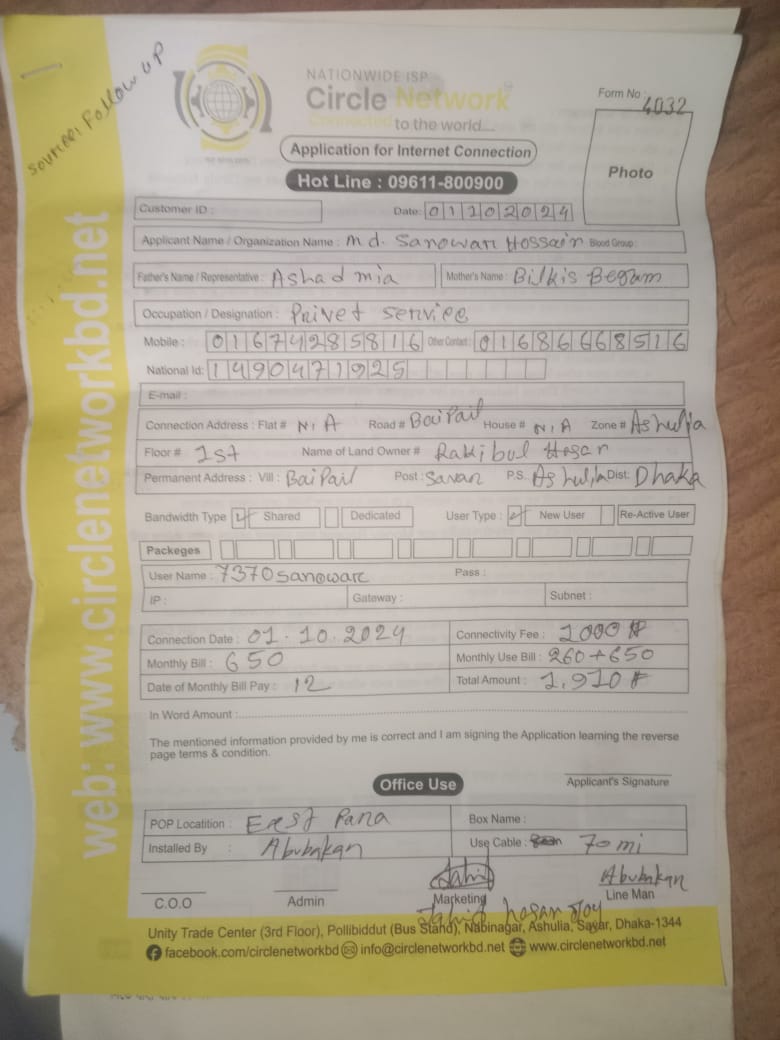 Source: Follow up
NATIONWIDE ISP
Circle Network
Connected to the world....
Form No : 4032
Photo
Application for Internet Connection
Hot Line : 09611-800900
Customer ID :
Date: 01102024
Applicant Name / Organization Name : Md. Sanowar Hossain Blood Group :
Father's Name / Representative : Ashad mia Mother's Name : Bilkis Begam
Occupation / Designation : Privet service
Mobile : 01674285816 Other Contact : 01686668516
National Id: 1490471925
E-mail :
Connection Address : Flat # N/A Road # BaiPail House # N/A Zone # Ashulia
Floor # 1st Name of Land Owner # Rakibul Hasan
Permanent Address : Vill : BaiPail Post : Savar P.S. Ashulia Dist: Dhaka
Bandwidth Type Shared Dedicated User Type : New User Re-Active User
Packeges
User Name : 7370sanowar Pass :
IP : Gataway : Subnet :
Connection Date : 01.10.2024 Connectivity Fee : 1000 ৳
Monthly Bill : 650 Monthly Use Bill : 260+650
Date of Monthly Bill Pay : 12 Total Amount : 1,910 ৳
In Word Amount :
The mentioned information provided by me is correct and I am signing the Application learning the reverse
page terms & condition.
Applicant's Signature
Office Use
POP Locatition : East Para Box Name :
Installed By : Abubakar Use Cable : 70 mi
Jahid Abubakar
C.O.O Admin Marketing Line Man
Jahid hasan Joy
Unity Trade Center (3rd Floor), Pollibiddut (Bus Stand), Nabinagar, Ashulia, Savar, Dhaka-1344
facebook.com/circlenetworkbd info@circlenetworkbd.net www.circlenetworkbd.net
web: www.circlenetworkbd.net